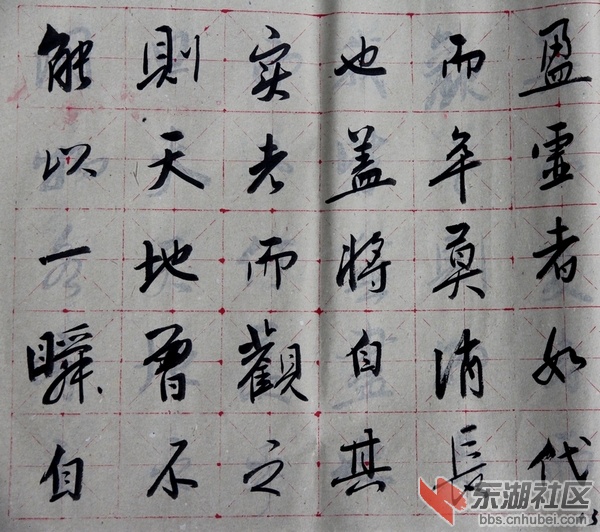 盈虚者如代
而卒莫消長
也盖將自其
变者而觀之
則天地曾不
能以一瞬自
东湖社区
bbs.cnhubei.com